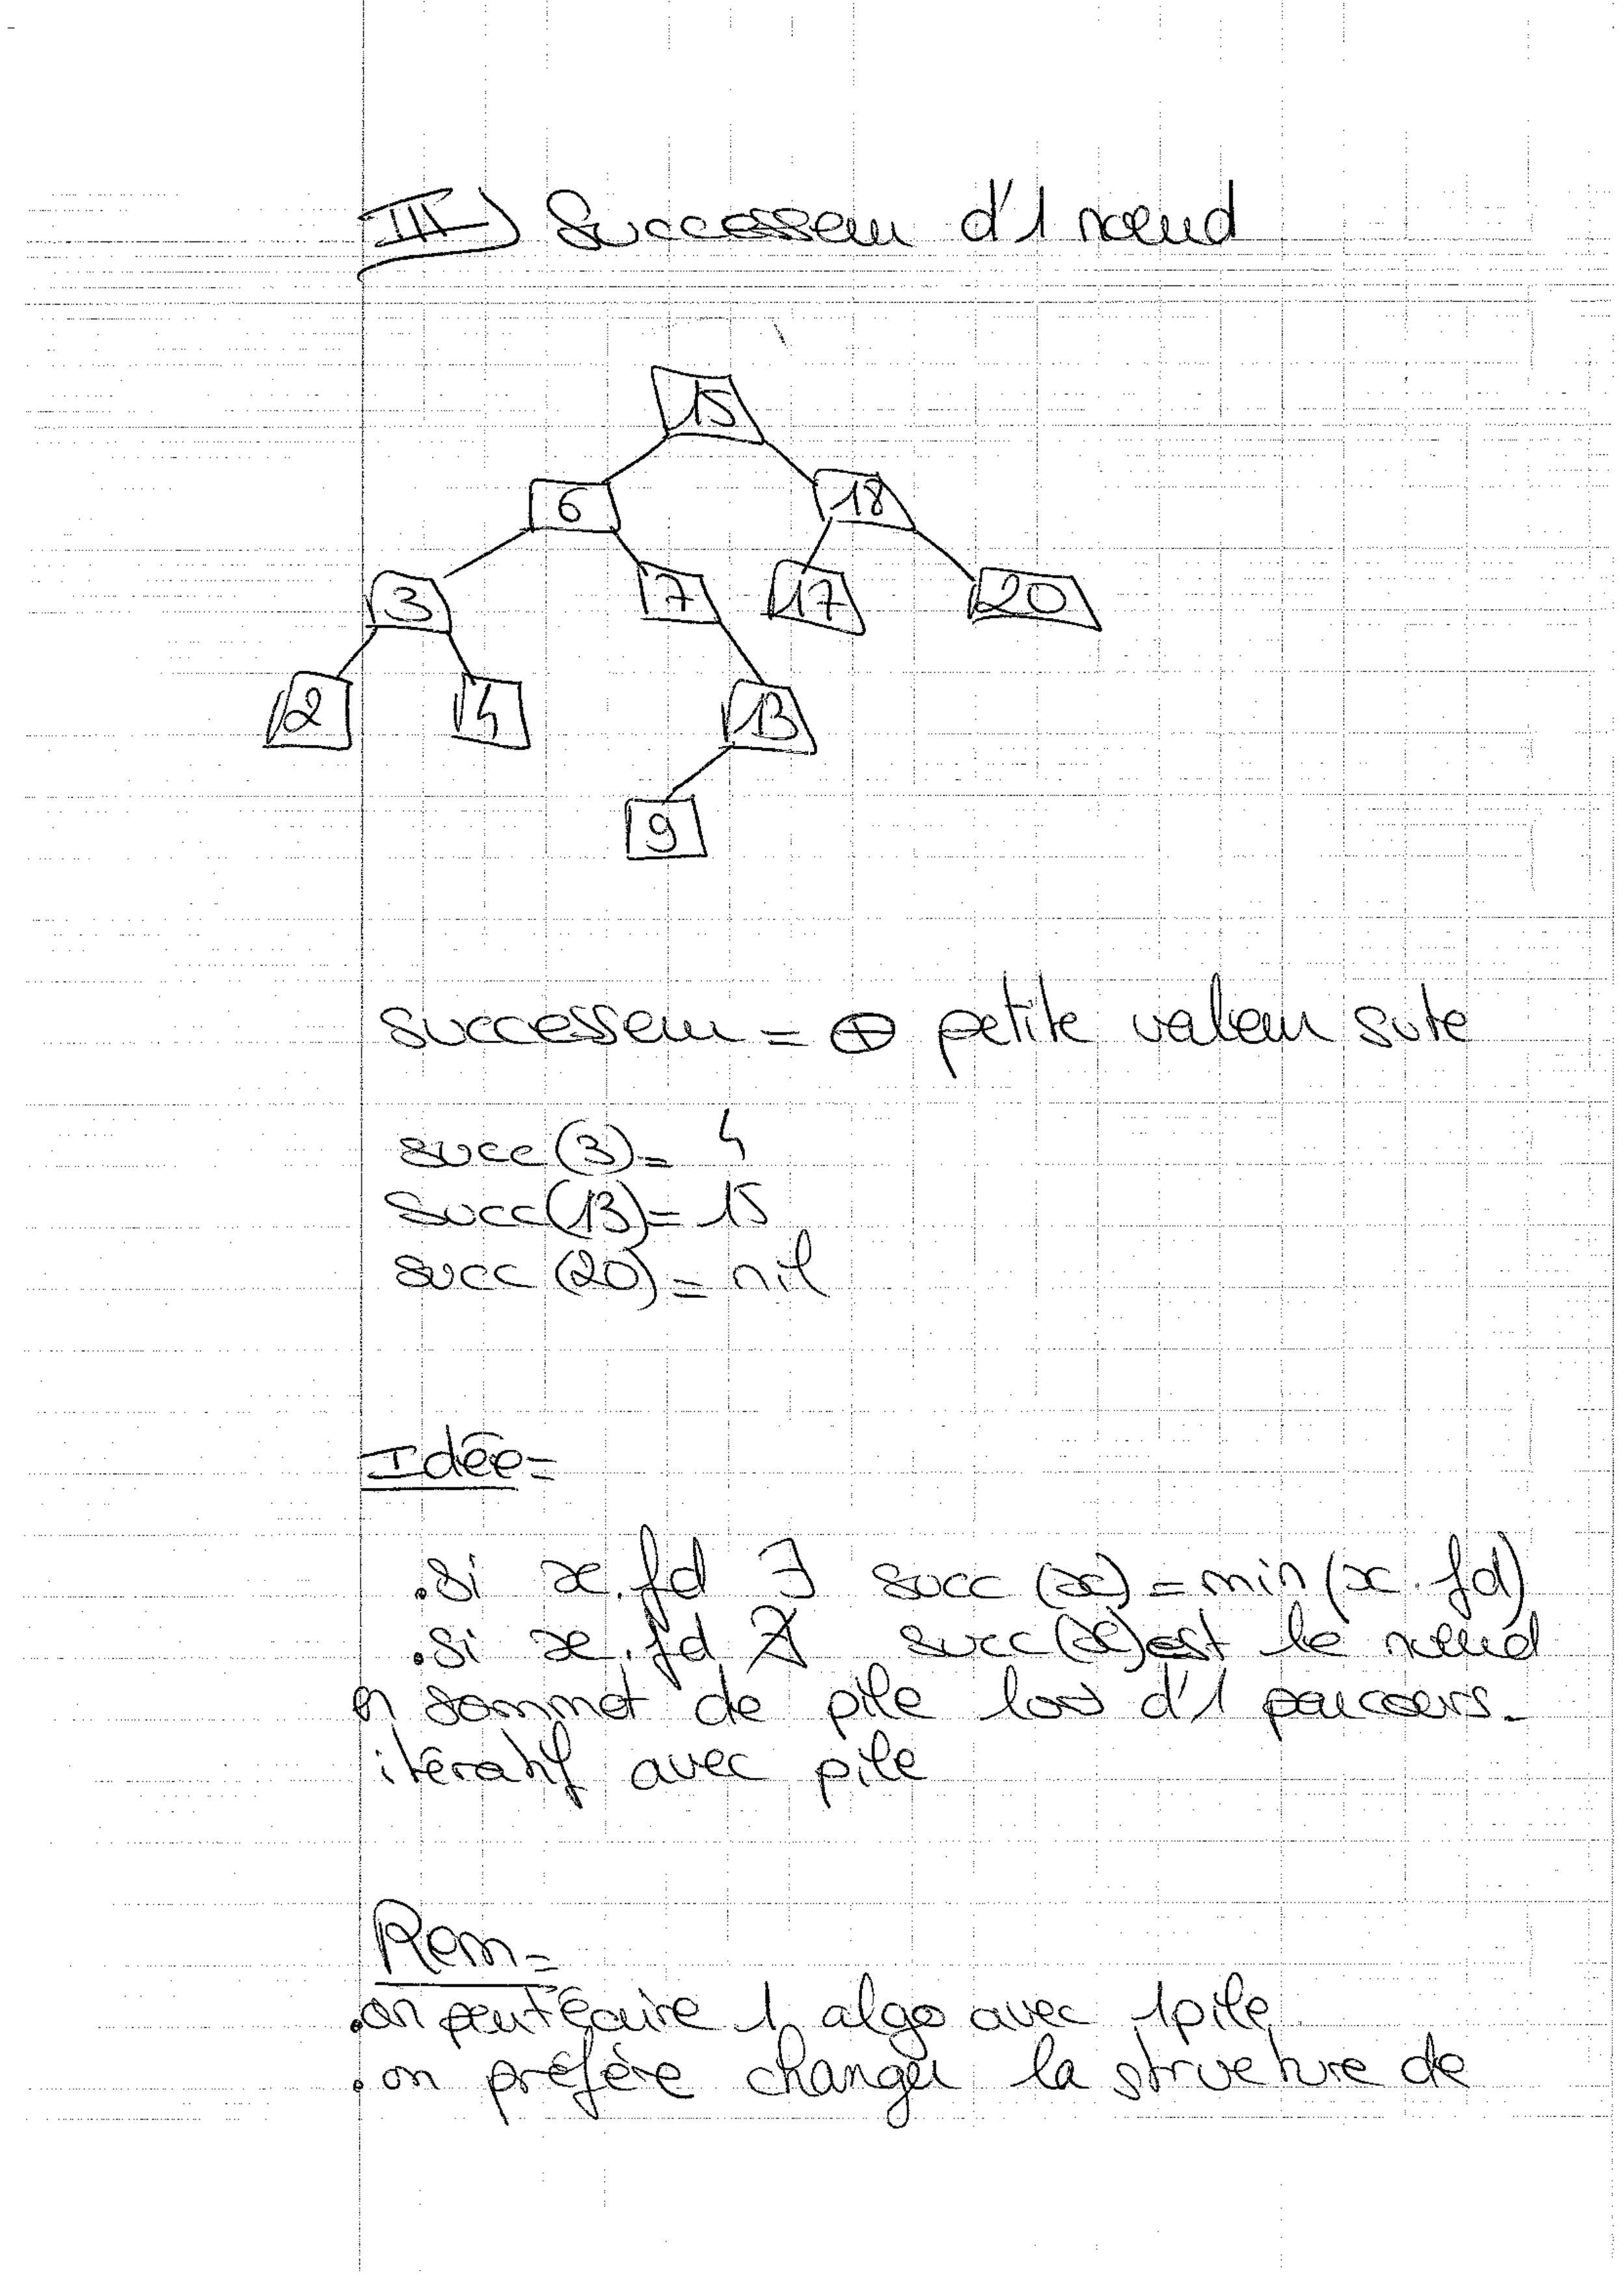 III) Successeur d'1 nœud
15
6 18
3 7 17 20
2 4 13
9
successeur = ⊕ petite valeur sute
succ(3) = 4
succ(13) = 15
succ(20) = nil
Idée =
.si x.fd ∃ succ(x) = min(x.fd)
.si x.fd ∄ succ(x) est le nœud
en sommet de pile lors d'1 parcours
itératif avec pile
Rem =
.on peut écrire 1 algo avec 1 pile
.on préfère changer la structure de